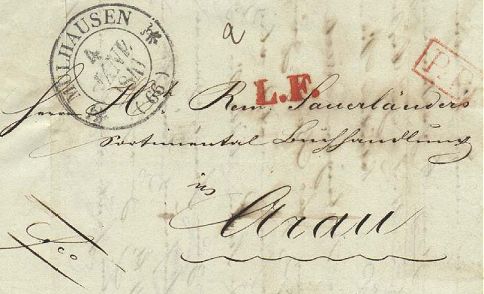 MULHAUSEN (66)
4 JANV 1841
a
L.F.
P.P.
Herrn H. R. Sauerländers
Sortimental Buchhandlung
in
Arau
fco